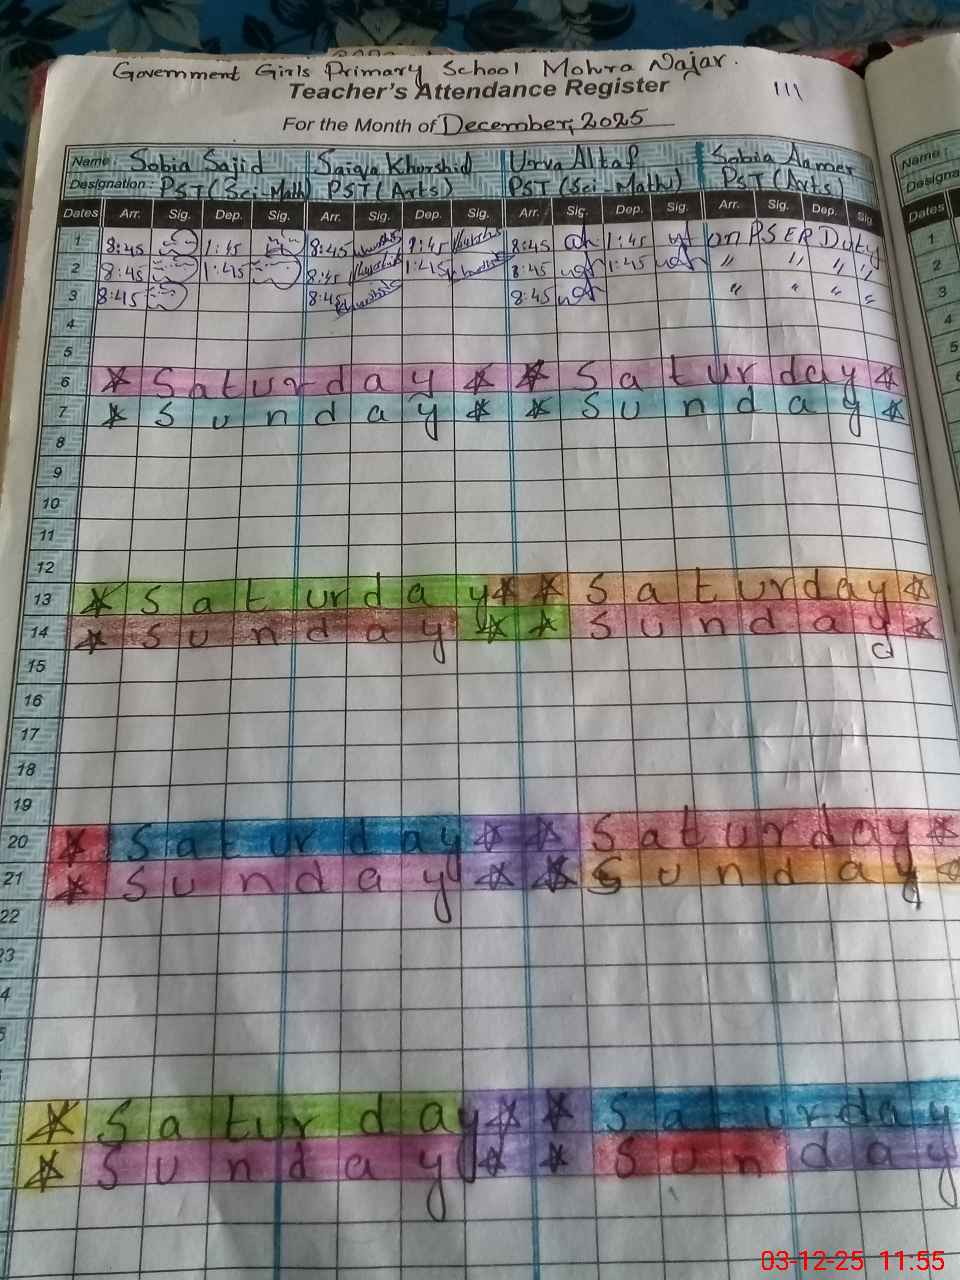 Government Girls Primary School Mohra Najar.
Teacher's Attendance Register
111
For the Month of December, 2025
Name: Sobia Sajid Saiqa Khurshid Urva Altaf Sobia Aamer
Designation: PST (Sci-Math) PST (Arts) PST (Sci-Math) PST (Arts)
Dates Arr. Sig. Dep. Sig. Arr. Sig. Dep. Sig. Arr. Sig. Dep. Sig. Arr. Sig. Dep. Sig
1 8:45 1:45 8:45 1:45 8:45 1:45 on PSER Duty
2 8:45 1:45 8:45 1:45 8:45 1:45 " " " "
3 8:45 8:45 8:45 " " " "
4
5
6 * Saturday * * Saturday *
7 * Sunday * * Sunday *
8
9
10
11
12
13 * Saturday * * Saturday *
14 * Sunday * * Sunday *
15
16
17
18
19
20 * Saturday * * Saturday *
21 * Sunday * * Sunday *
22
23
4
5
* Saturday * * Saturday
* Sunday * * Sunday
Name:
Designa
Dates
1
2
3
4
5
6
03-12-25 11:55